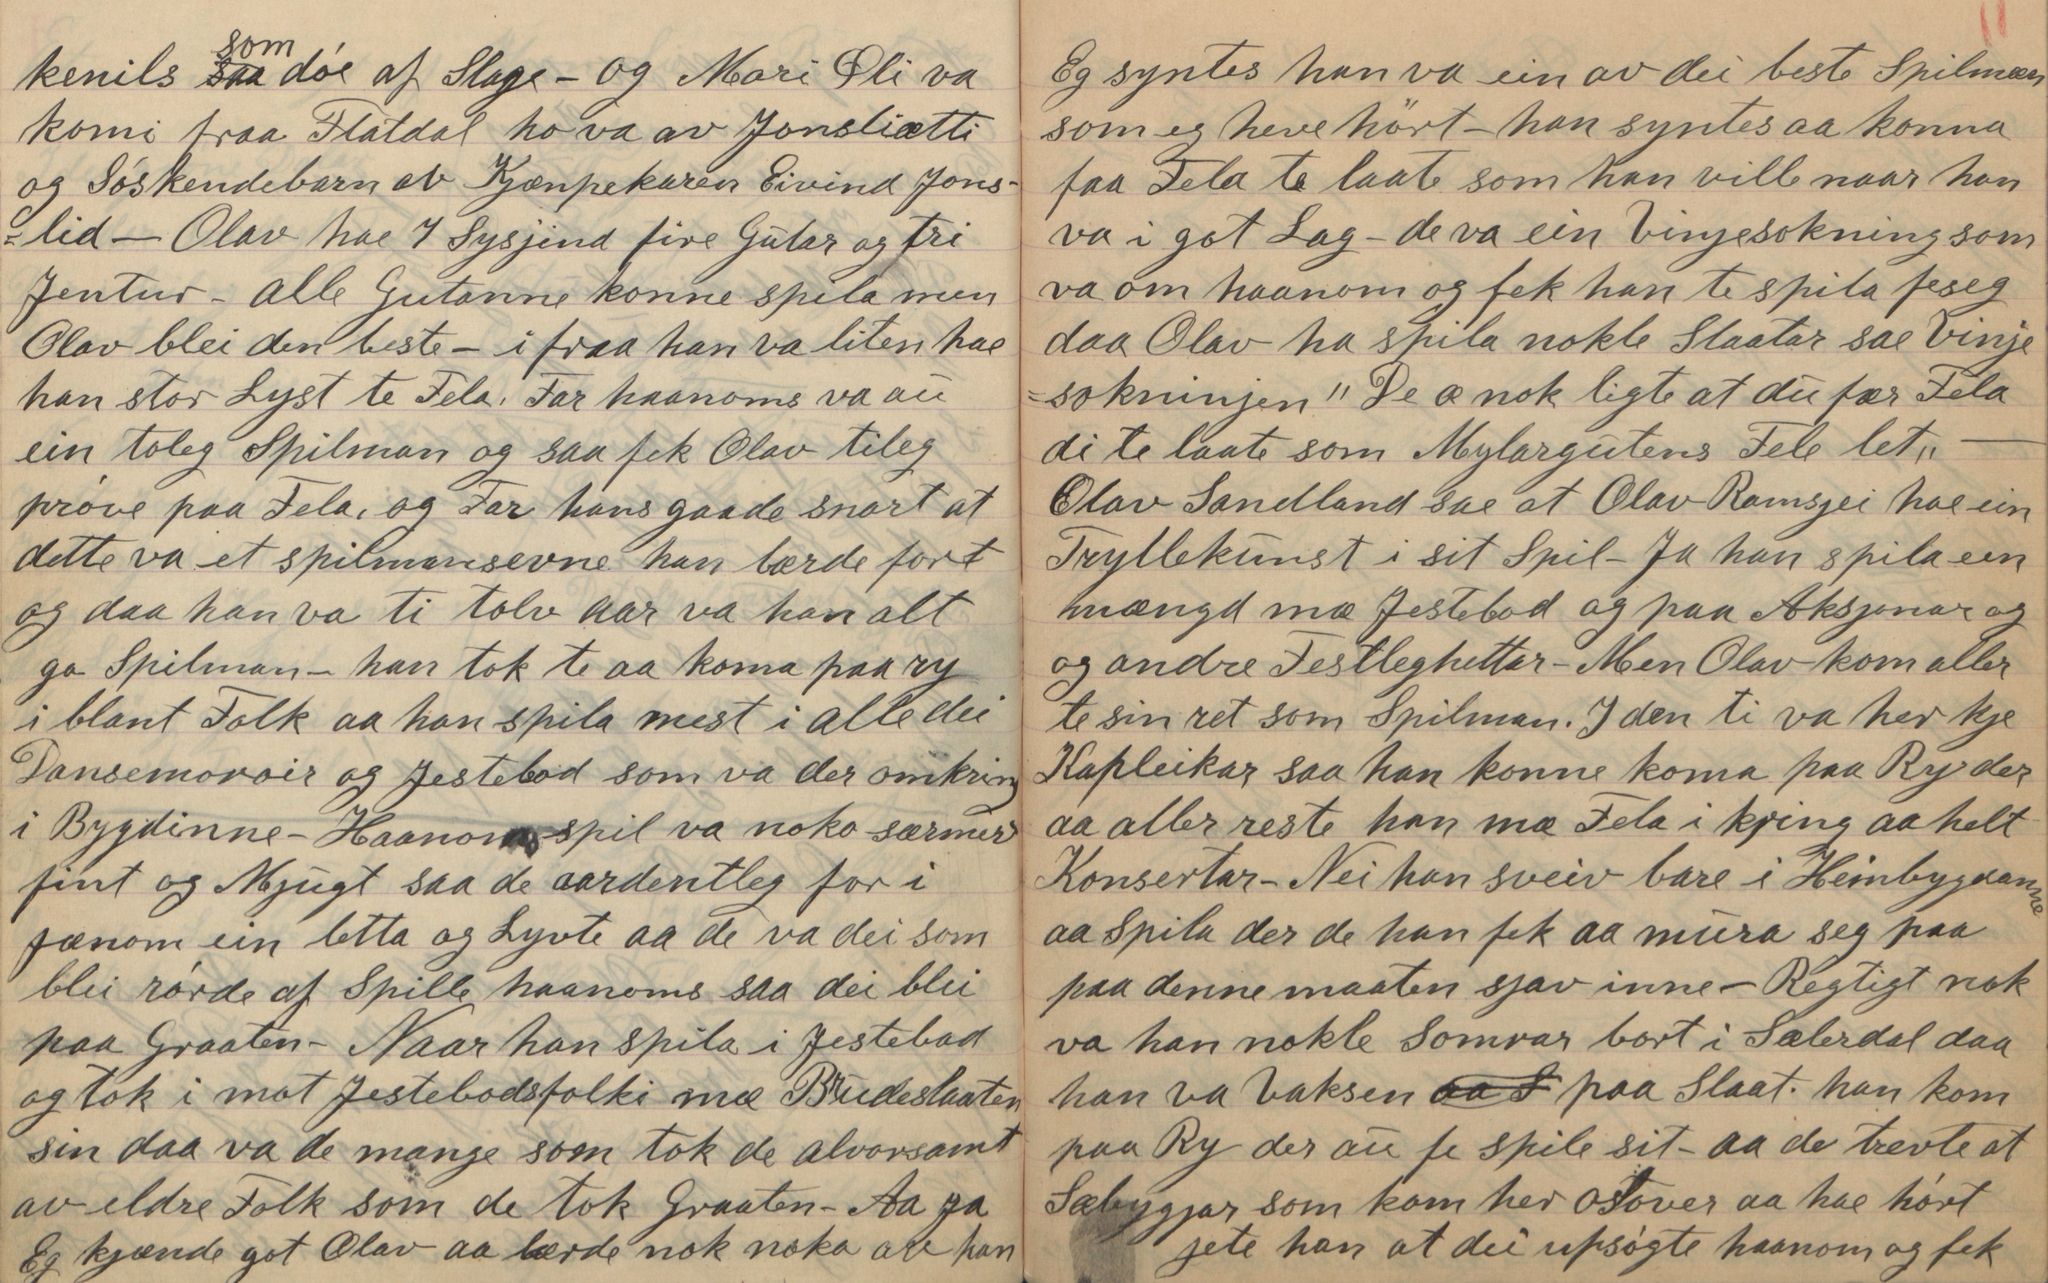 kenils som døe af Slage - og Mari Øli va
komi fraa Flatdal ho va av Jonsliætti
og Søskendebarn av Kjænpekaren Eivind Jons-
=lid - Olav hae 7 Sysjend fire Gutar og tri
Jentur - alle Gutanne konne spila men
Olav blei den beste - i fraa han va liten hae
han stor Lyst te Fela. Far haanoms va au
ein toleg Spilman og saa fek Olav tileg
prøve paa Fela, og Far hans gaade snart at
dette va et spilmansevne han lærde fort
og daa han va ti tolv aar va han alt
go Spilman - han tok te aa koma paa ry
i blant Folk aa han spila mest i alle dei
Dansemoroir og Jestebod som va der omkring
i Bygdinne - Haanoms spil va noko særmerk
fint og Mjugt saa de aardentleg for i
jænom ein letta og Lyvte aa de va dei som
blei rørde af Spille haanoms saa dei blei
paa Graaten - Naar han spila i Jestebod
og tok i mot Jestebodsfolki mæ Brudeslaaten
sin daa va de mange som tok de alvorsamt
av eldre Folk som de tok Graaten - Aa ja
Eg kjænde got Olav aa lærde nok noko av han
11
Eg syntes han va ein av dei beste Spilmæn
som eg heve hört - han syntes aa konna
faa Fela te laate som han ville naar han
va i got Lag - de va ein Vinjesokning som
va om haanom og fek han te spila feseg
daa Olav ha spila nokle Slaatar sae Vinje
=sokningjen " De æ nok ligte at du fær Fela
di te laate som Mylargutens Fele let" -
Olav Sandland sae at Olav Ramsjei hae ein
Tryllekunst i sit Spil - Ja han spila ein
mængd mæ Jestebod og paa Aksjonar og
og andre Festleghettar - Men Olav kom aller
te sin ret som Spilman. I den ti va her kje
Kapleikar saa han konne koma paa Ry der
aa aller reste han mæ Fela i kring aa helt
Konsertar - Nei han sveiv bare i Heimbygdanne
aa Spila der de han fek aa mura seg paa
paa denne maaten sjav inne - Regtigt nok
va han nokle Somrar bort i Sæterdal daa
han va Vaksen paa Slaat. han kom
paa Ry der au fe spile sit - aa de trevte at
Sæbyggjar som kom her over aa hae hórt
jete han at dei upsøgte haanom og fek